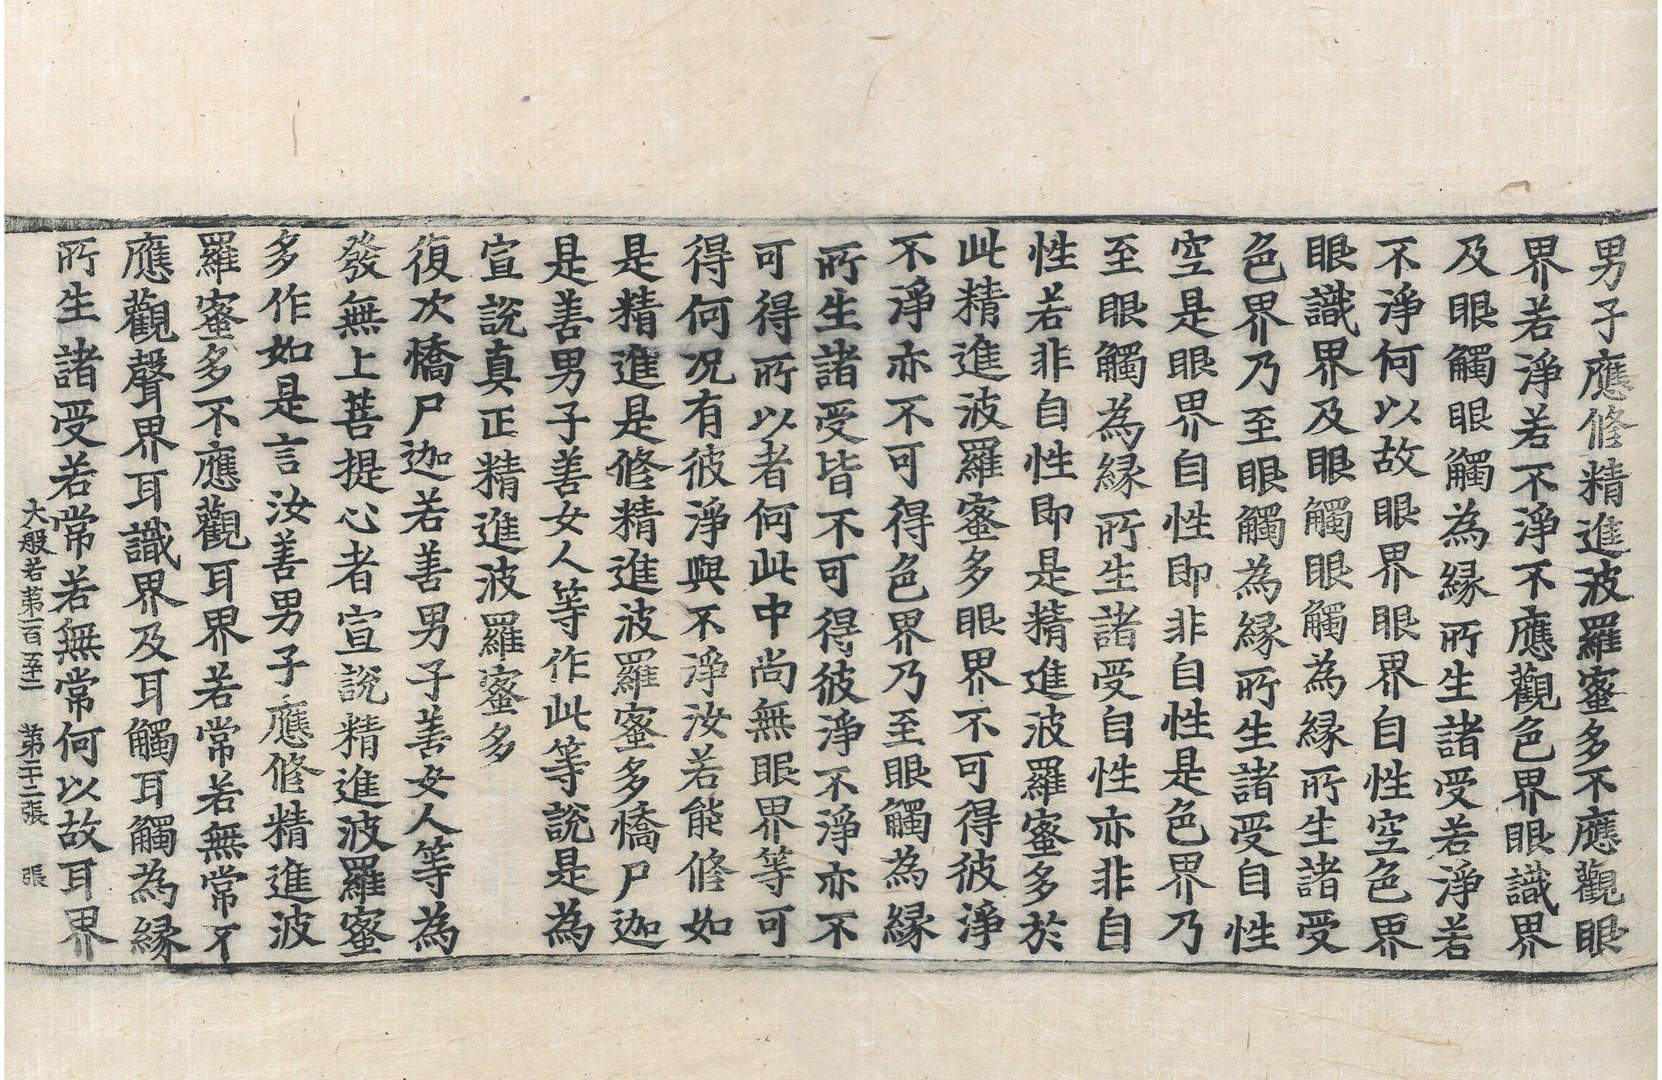 男子應脩精進波羅蜜多不應觀眼
界若淨若不淨不應觀色界眼識界
及眼觸眼觸為縁所生諸受若淨若
不淨何以故眼界眼界自性空色界
眼識界及眼觸眼觸為縁所生諸受
色界乃至眼觸為縁所生諸受自性
空是眼界自性即非自性是色界乃
至眼觸為縁所生諸受自性亦非自
性若非自性即是精進波羅蜜多於
此精進波羅蜜多眼界不可得彼淨
不淨亦不可得色界乃至眼觸為縁
所生諸受皆不可得彼淨不淨亦不
可得所以者何此中尚無眼界等可
得何况有彼淨與不淨汝若能脩如
是精進是脩精進波羅蜜多憍尸迦
是善男子善女人等作此等說是為
宣說真正精進波羅蜜多
復次憍尸迦若善男子善女人等為
發無上菩提心者宣說精進波羅蜜
多作如是言汝善男子應脩精進波
羅蜜多不應觀耳界若常若無常不
應觀聲界耳識界及耳觸耳觸為縁
所生諸受若常若無常何以故耳界
大般若第一百五十二 第二十二張 張